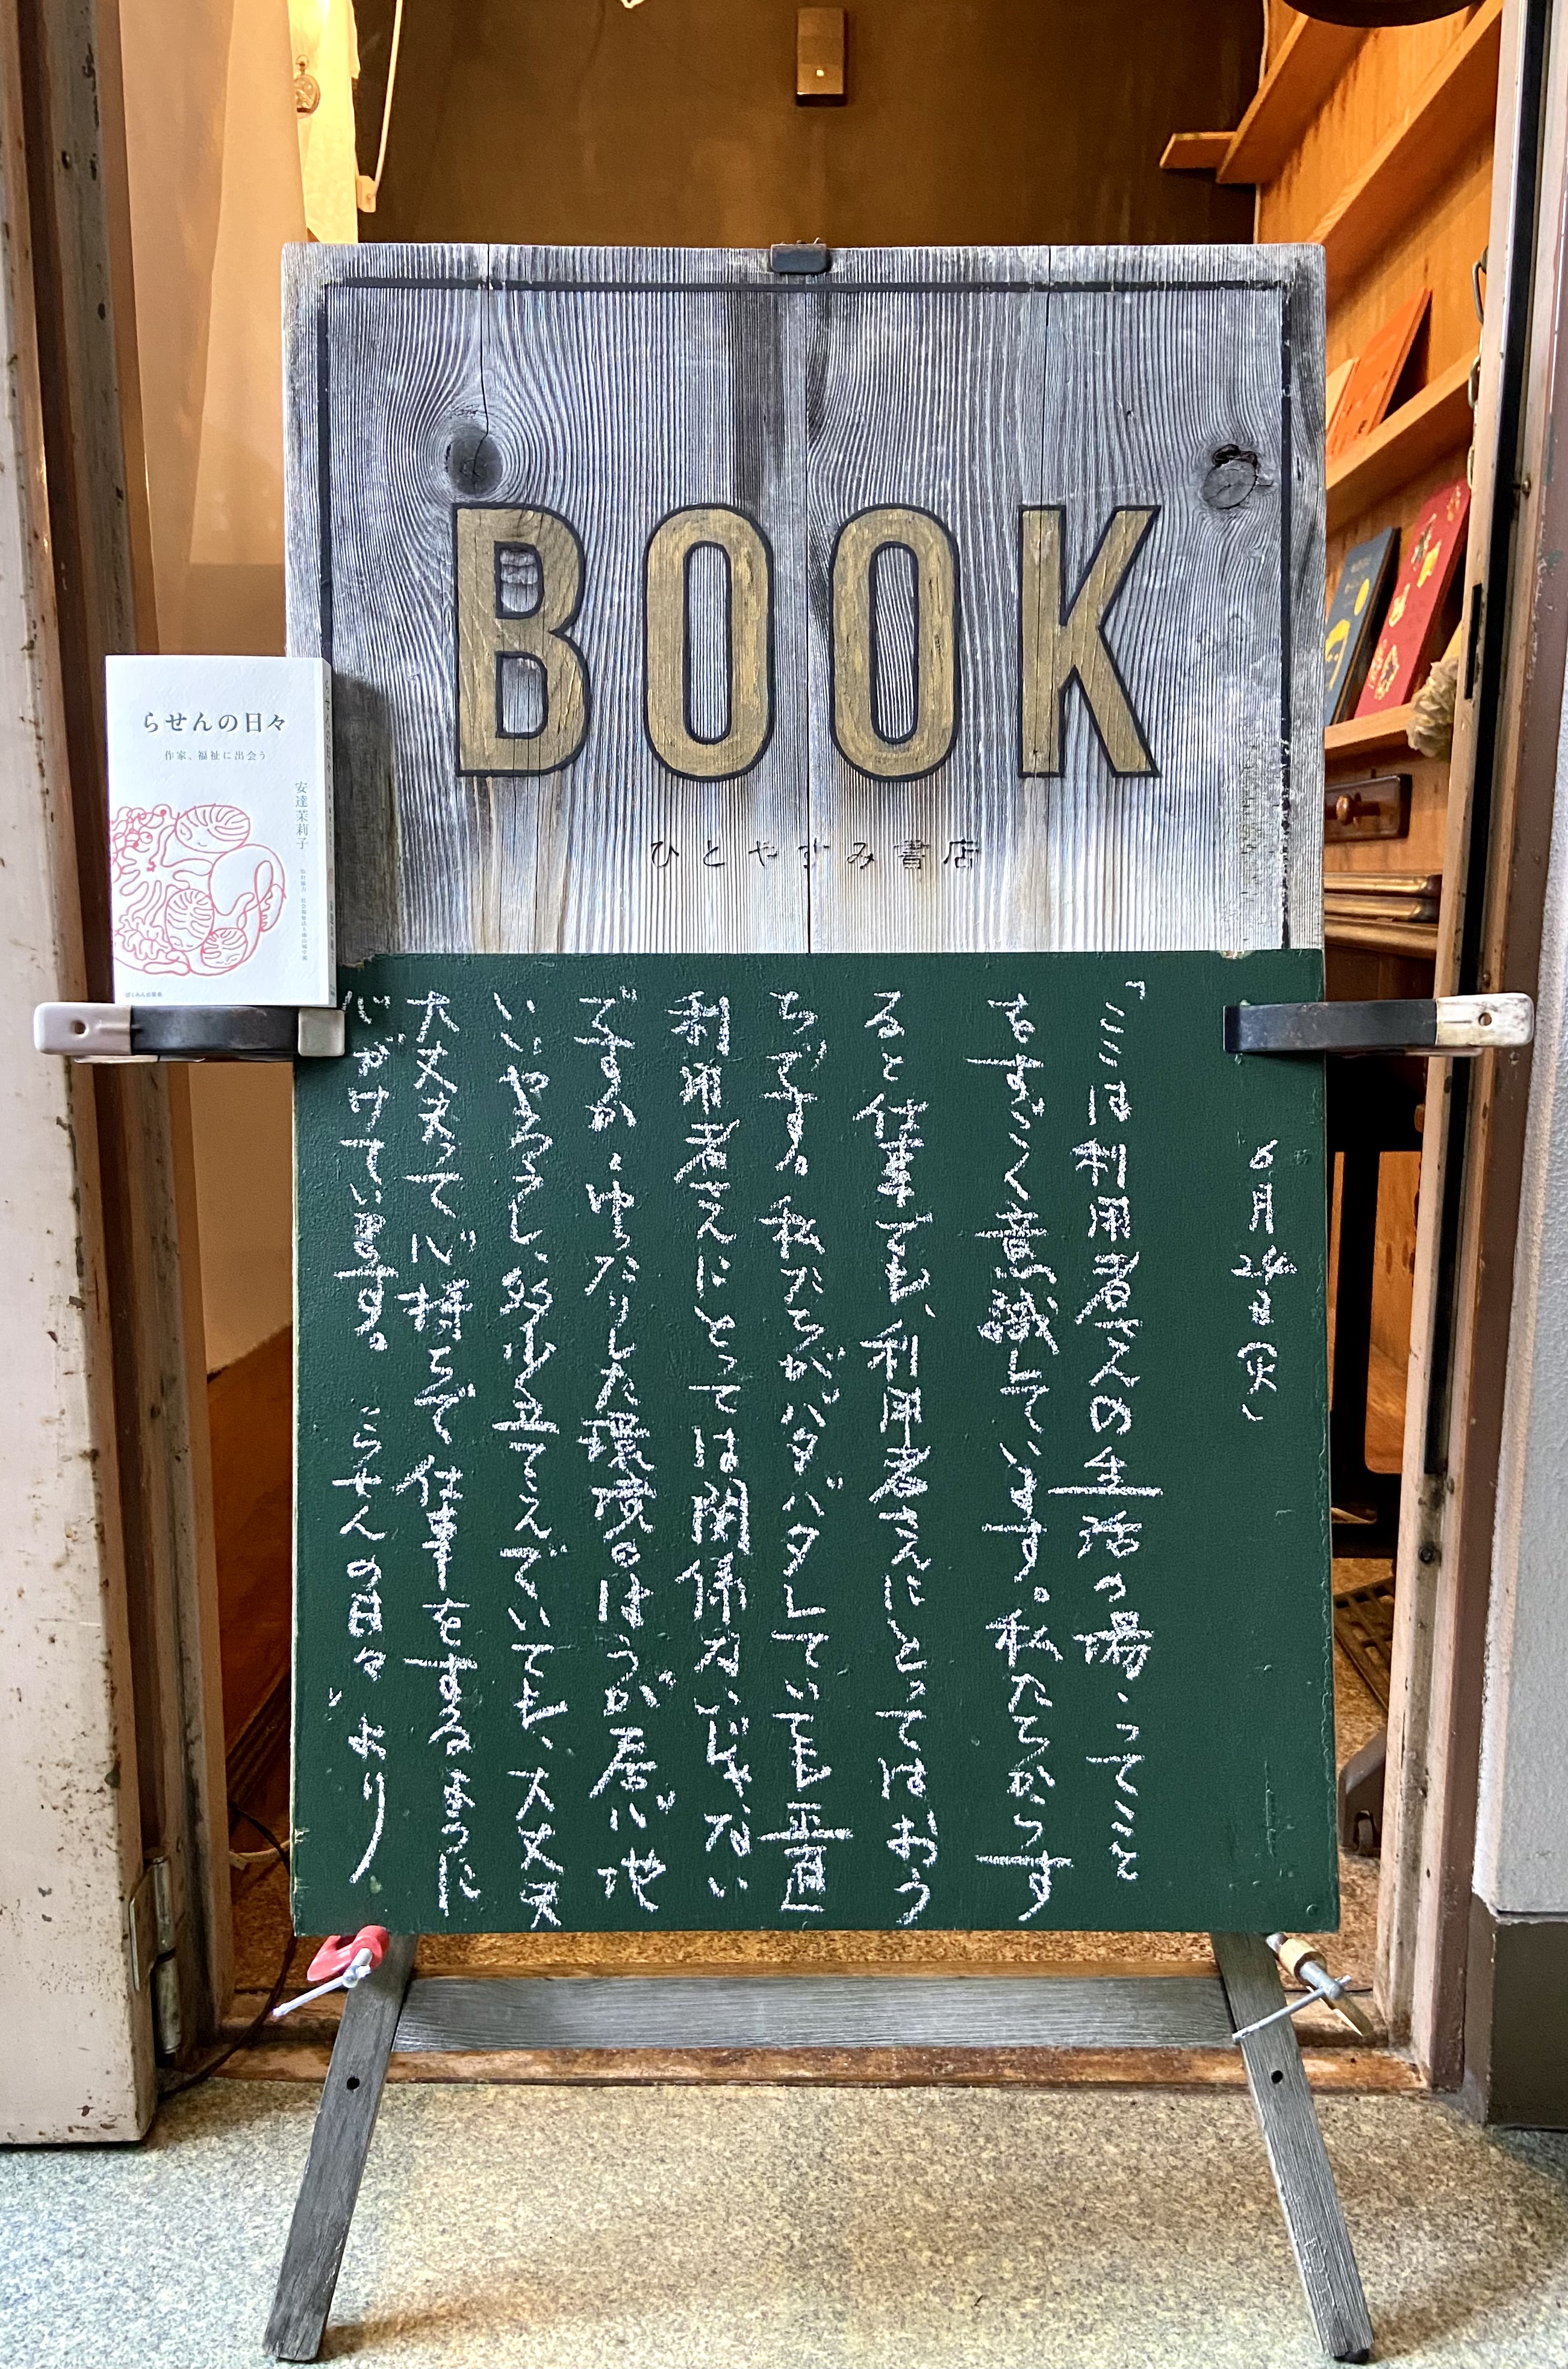 BOOK
ひとやすみ書店
らせんの日々
作家、福祉に出会う
安達茉莉子
ぼくみん出版会
6月24日(火)
「ここは利用者さんの生活の場、ってこと
をすごく意識しています。私たちからす
ると仕事でも、利用者さんにとってはおう
ちです。私たちがバタバタしていても正直
利用者さんにとっては関係ないじゃない
ですか、ゆったりした環境のほうが居心地
いいやろうし、多少立てこんでいても、大丈夫
大丈夫って心持ちで仕事をするように
心がけています。 “らせんの日々” より